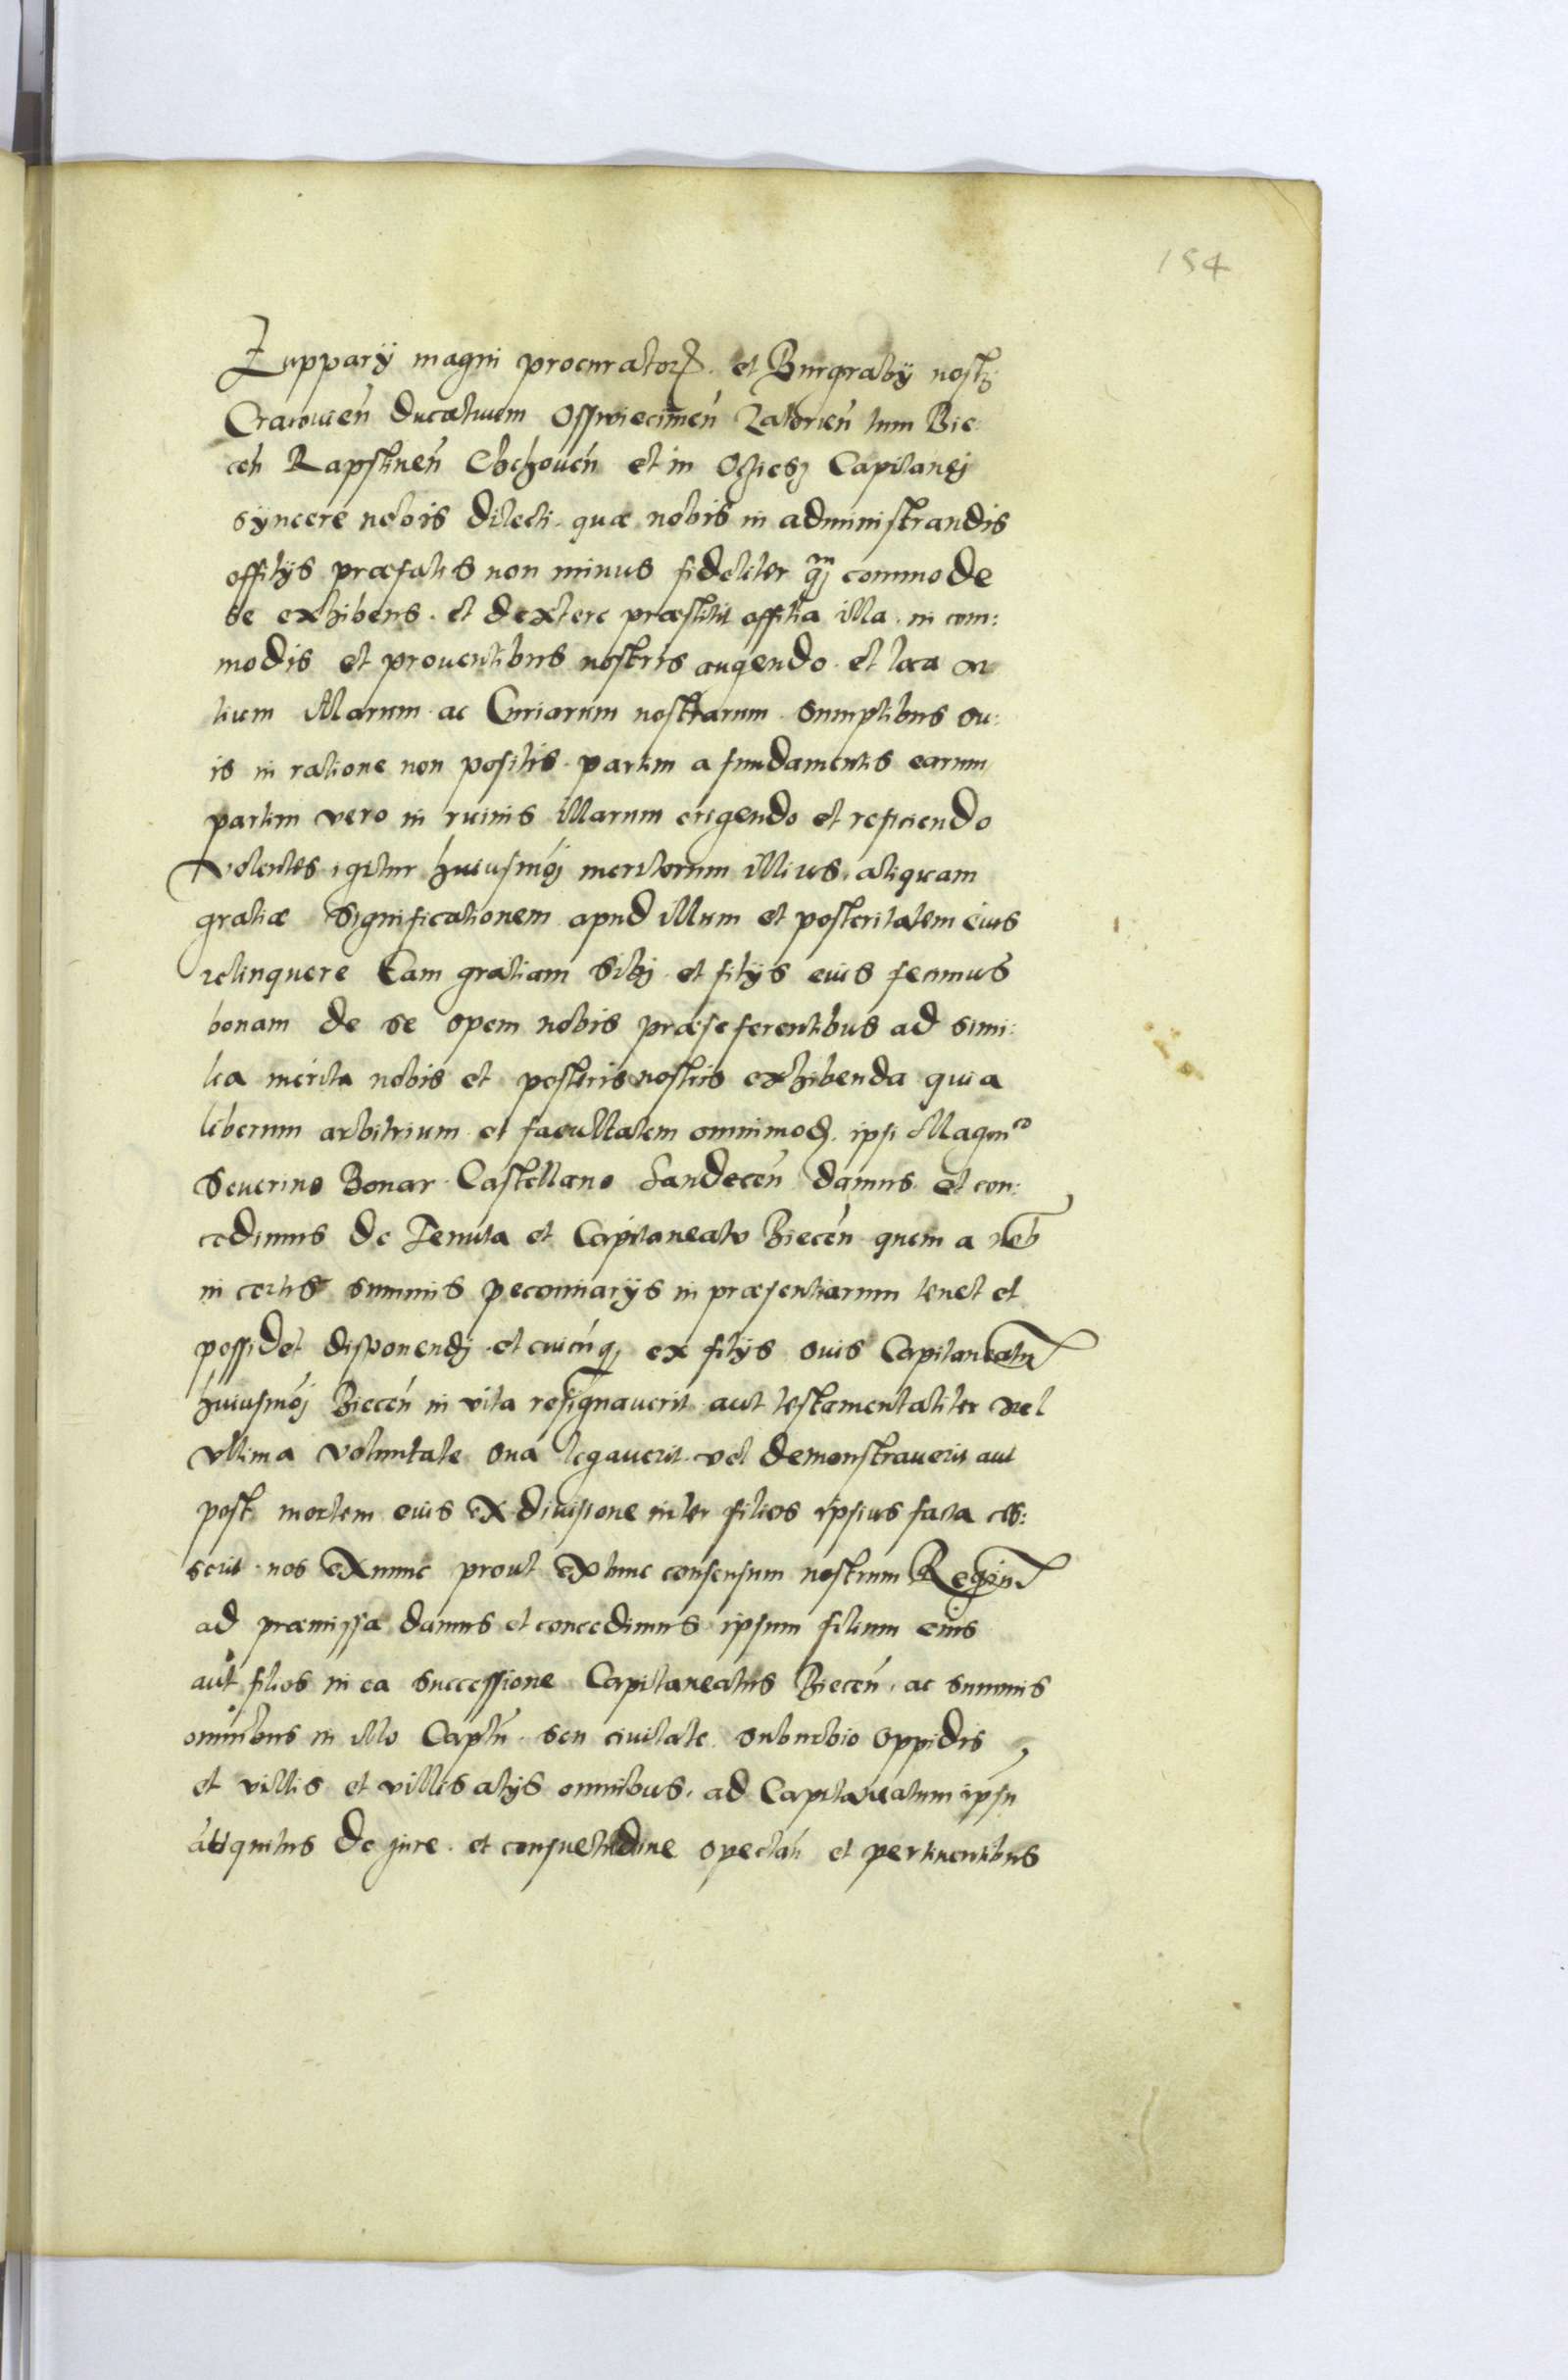 154
Zupparÿ magni procurator et Burgrabÿ nostrj
Cracouien̄ ducatuum Osswiecimen̄ Zatorien̄ tum Bie
cen̄ Rapstinen̄ Chezouen̄ et in Ociesz Capitanej
sÿncere nobis dilecti quæ nobis in administrandis
offitÿs præfatis non minus fideliter qͫ commode
se exhibens. et dextere præstitit offitia illa in com:
modis et prouentibus nostris augendo et loca ar
tium illarum ac Curiarum nostrarum sumptibus su:
is in ratione non positis. partim a fundamentis earum
partim vero in ruinis illarum erigendo et reficiendo
Volentes igitur huiusmōj meritorum illius aliquam
gratiæ significationem apud illum et posteritatem eius
relinquere Eam gratiam sibj et filÿs eius fecimus
bonam de se spem nobis præseferentibus ad simi:
lia merita nobis et posteris nostris exhibenda quia
liberum arbitrium et facultatem omnimod. ipsi Magnᶜᵒ
Seuerino Bonar Castellano Sandecen̄ damus et con:
cedimus de Tenuta et Capitaneatu Biecen̄ quem a nob
in certis summis pecuniarÿs in præsentiarum tenet et
possidet disponendj et cuicūq ex filÿs suis Capitaneatū
huiusmōj Biecen̄ in vita resignauerit aut testamentaliter vel
vltima voluntate sua legauerit vel demonstrauerit aut
post mortem eius ex diuisione inter filios ipsius facta ces:
serit nos ex nunc prout ex tunc consensum nostrum Regiū
ad præmissa damus et concedimus ipsum filium eius
aut filios in ea successione Capitaneatus Biecen̄ ac summis
omnibus in illo Captū seu ciuitate suburbio oppidis
et villis et villis alÿs omnibus ad Capitaneatum ipsū
atiquitus de jure et consuetudine spectań et pertinentibus